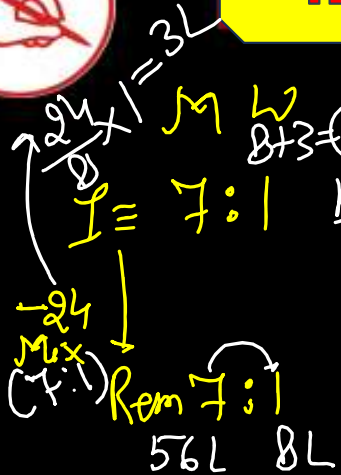 24/8 × 1 = 3L
M W
8+3=(
I ≡ 7 : 1
-24
Mix
(7:1)
Rem 7 : 1
56L 8L